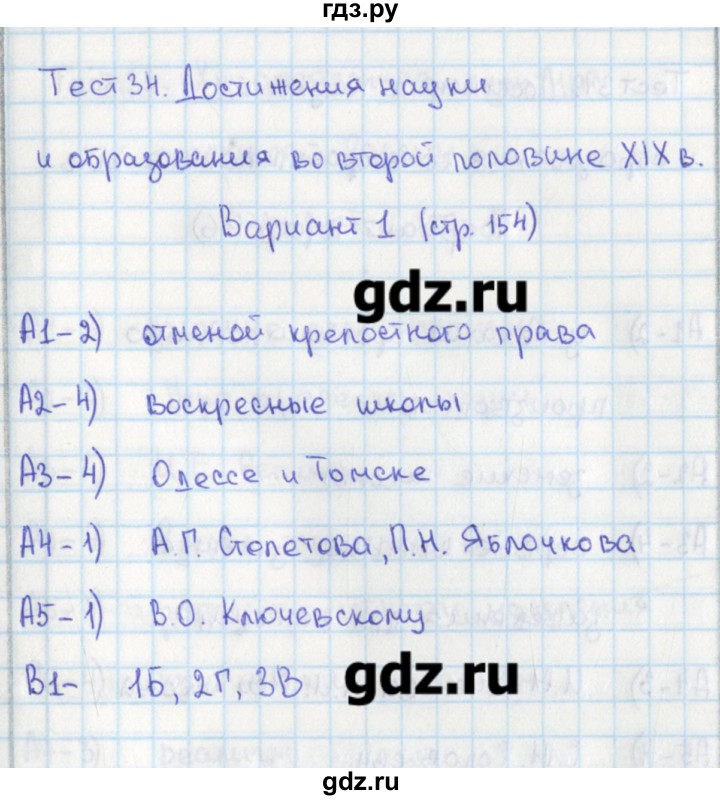 гдз.ру
Тест 34. Достижения науки
и образования во второй половине XIX в.
Вариант 1 (стр. 154)
gdz.ru
А1-2) отменой крепостного права
А2-4) воскресные школы
А3-4) Одессе и Томске
А4-1) А.Г. Столетова, П.Н. Яблочкова
А5-1) В.О. Ключевскому
В1- 1Б, 2Г, 3В
gdz.ru
gdz.ru